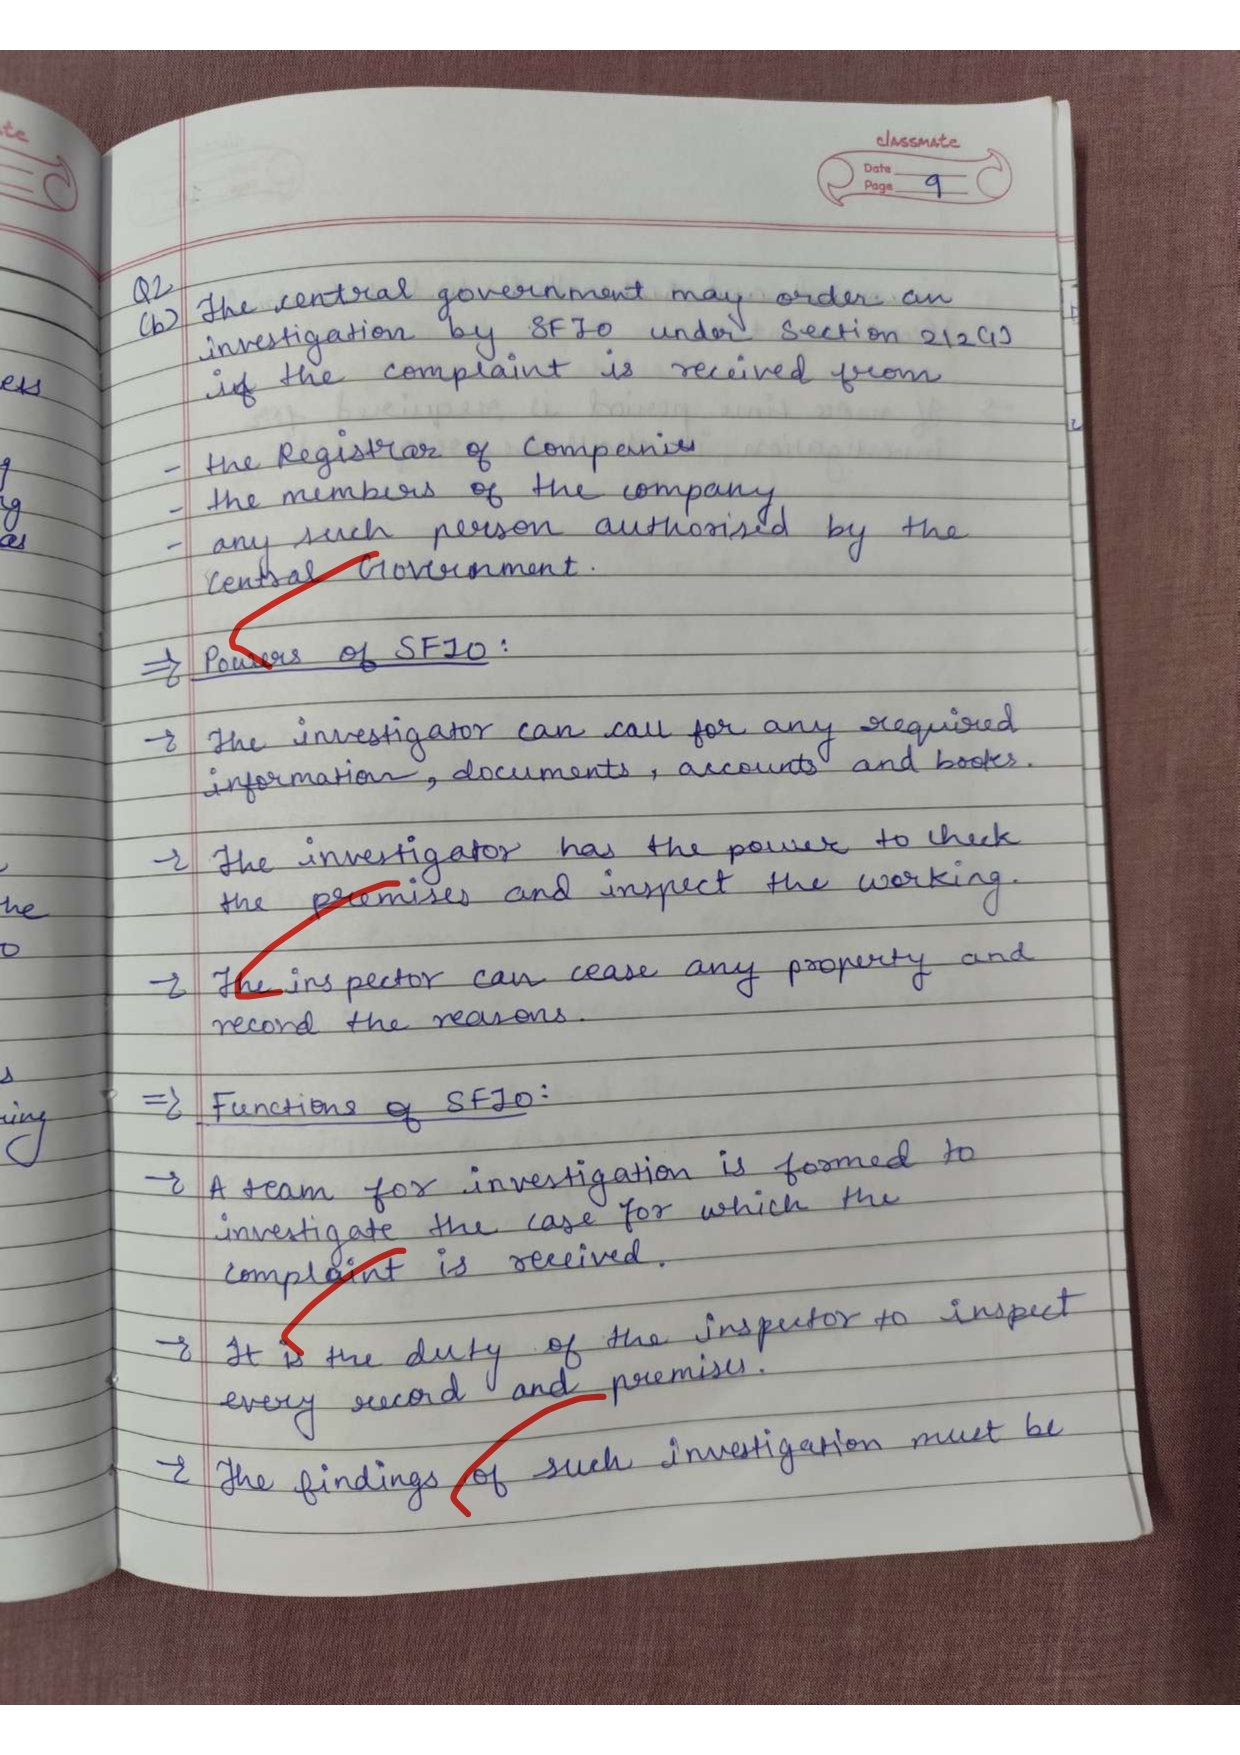 classmate
Date
Page 9
Q2
(b) The central government may order an
investigation by SFIO under Section 212(1)
if the complaint is received from
- the Registrar of Companies
- the members of the company
- any such person authorised by the
Central Government.
⇒ Powers of SFIO:
→ The investigator can call for any required
information, documents, accounts and books.
→ The investigator has the power to check
the premises and inspect the working.
→ The inspector can cease any property and
record the reasons.
⇒ Functions of SFIO:
→ A team for investigation is formed to
investigate the case for which the
complaint is received.
→ It is the duty of the inspector to inspect
every record and premises.
→ The findings of such investigation must be